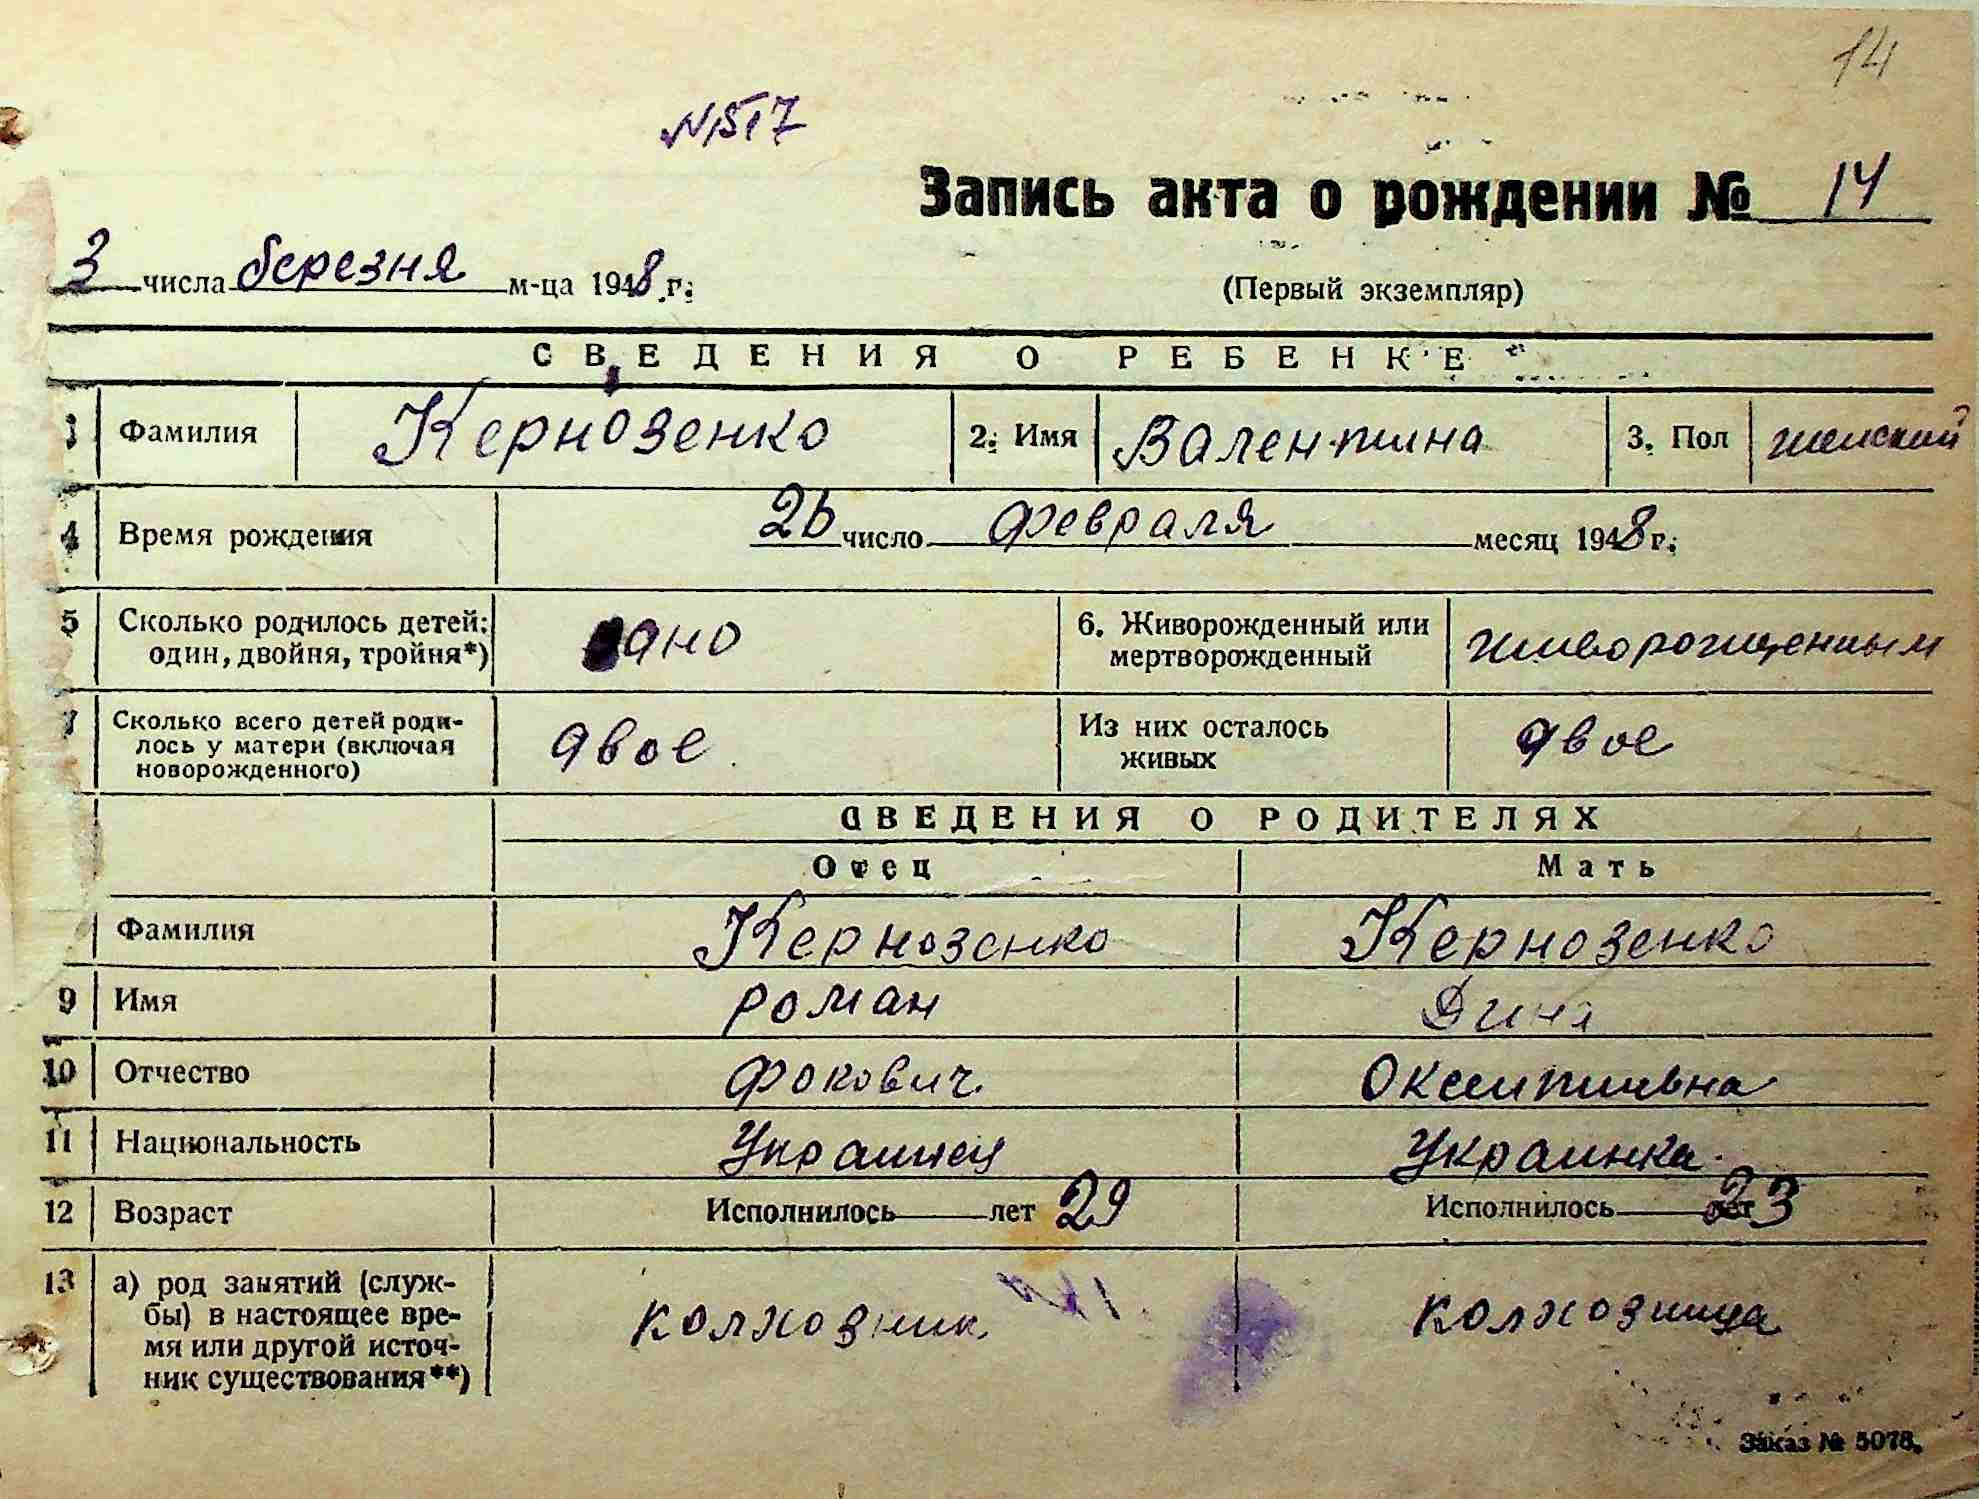 14
N1517
Запись акта о рождении № 14
3 числа березня м-ца 1948 г.
(Первый экземпляр)
СВЕДЕНИЯ О РЕБЕНКЕ
1 Фамилия Кернозенко 2. Имя Валентина 3. Пол женский
4 Время рождения 26 число февраля месяц 1948 г.
5 Сколько родилось детей: один, двойня, тройня*) одно 6. Живорожденный или мертворожденный живорожденным
7 Сколько всего детей родилось у матери (включая новорожденного) двое Из них осталось живых двое
СВЕДЕНИЯ О РОДИТЕЛЯХ
Отец Мать
Фамилия Кернозенко Кернозенко
9 Имя Роман Дина
10 Отчество Фокович
11 Национальность Украинец Украинка
12 Возраст Исполнилось лет 29 Исполнилось лет 23
13 а) род занятий (службы) в настоящее время или другой источник существования**) колхозник колхозница
Заказ № 5078.